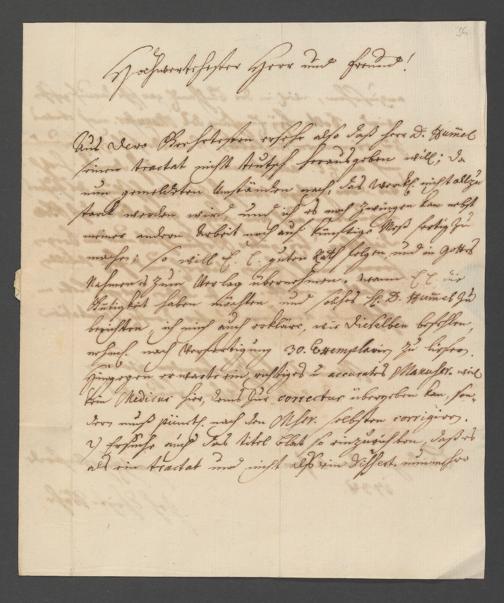 Hochwerthester Herr und Freund!
Aus Dero Geehrtesten ersehe also daß Herr D. Hum̃el
seinen tractat nicht teutsch herausgeben will; da
nun gemeldten Umständen nach, das Werckh. nicht allzu
starck werden wird und ich es noch zwingen kan nebst
meiner andern Arbeit noch auf künfftige Meß fertig zu
machen; so will E. E. guten Rath folgen, und in Gottes
Nahmen es zum Verlag übernehmen. wann E. E. die
Gütigkeit haben möchten und solches H. D. Hummel zu
berichten, ich mich auch erkläre, wie dieselben befohlen,
nach Verfertigung 30. Exemplaria zu liefern.
Hingegen erwarte ein richtiges u. accurates Manuscr. weil
kein Medicus hier, dem zur correctur übergeben kan, son-
dern muß nach dem Mscr. selbsten corrigiren.
Ersuche auch das Titel Blat so einzurichten, daß es
als ein tractat und nicht alß ein Dissert.